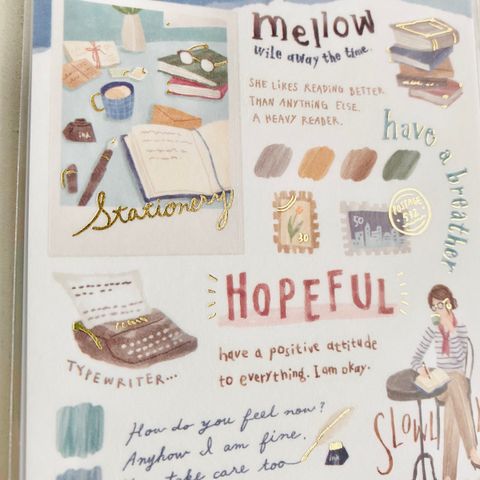 mellow
wile away the time.
SHE LIKES READING BETTER
THAN ANYTHING ELSE.
A HEAVY READER.
have a breather
ink
Stationery
30
50
POSTAGE
532
HOPEFUL
have a positive attitude
to everything. I am okay.
TYPEWRITER...
How do you feel now?
Anyhow I am fine.
take care too
ink
SLOWL